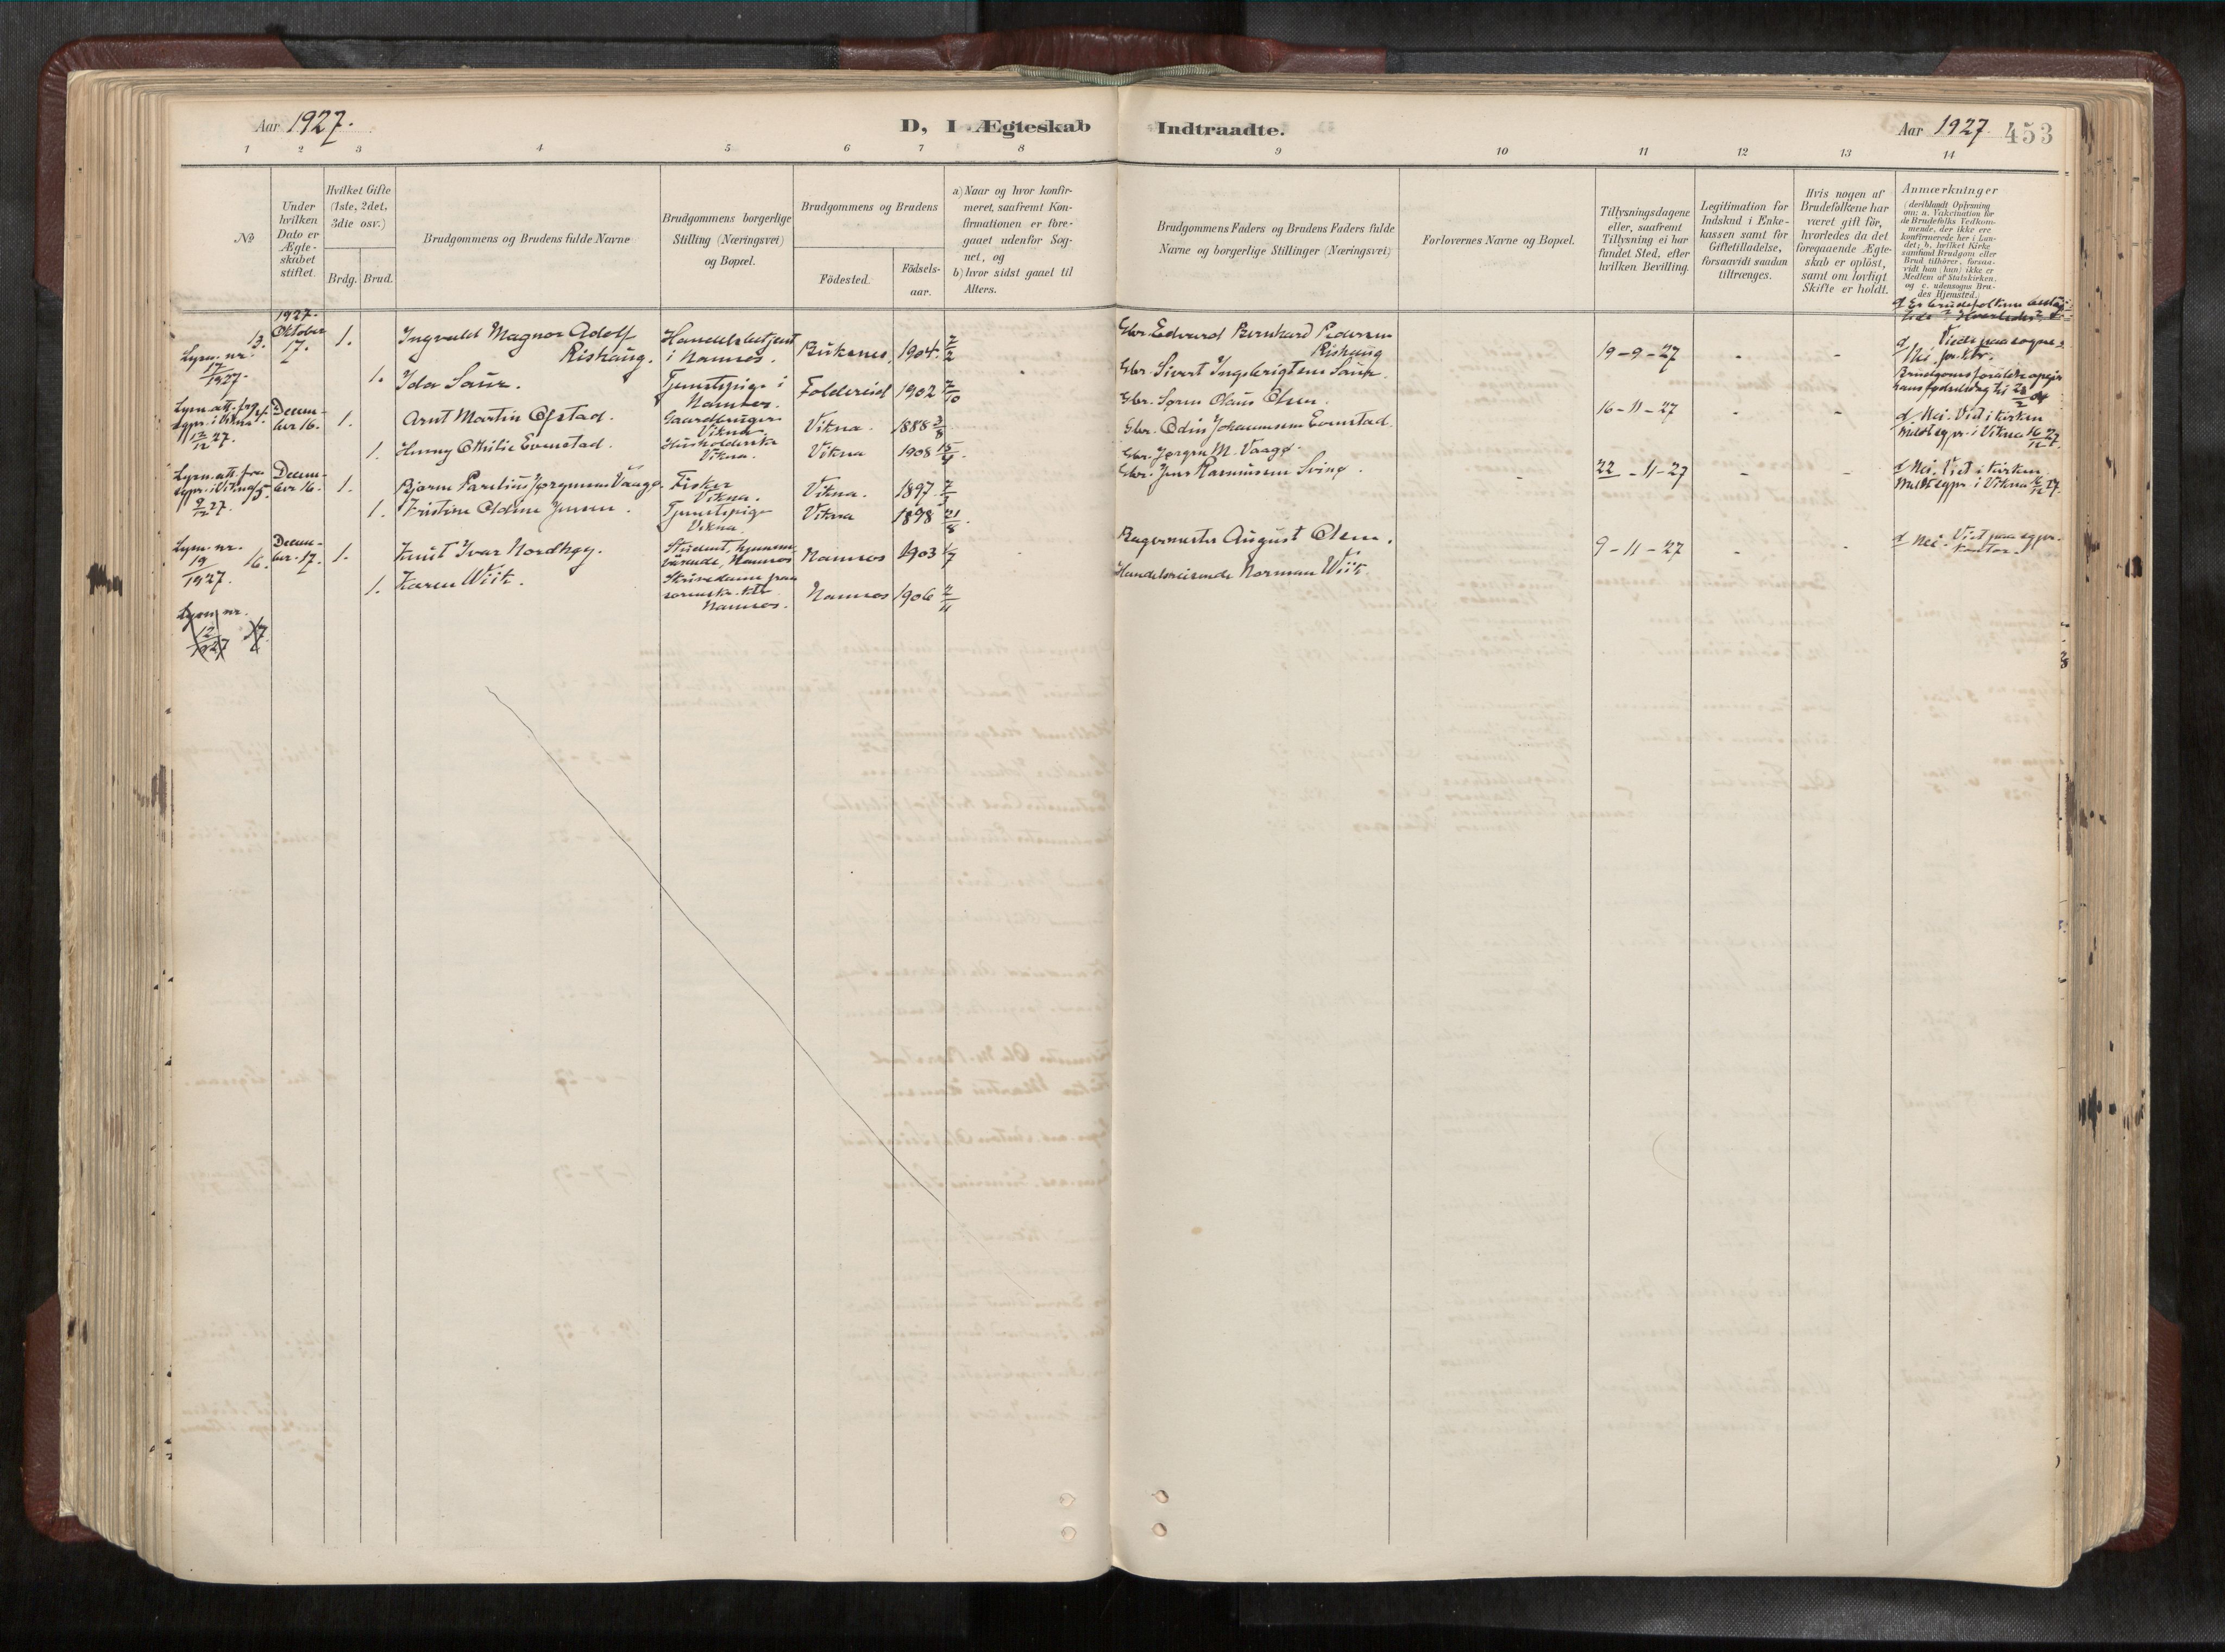 Aar 1927.
D, I Ægteskab Indtraadte.
Aar 1927. 453
1 2 3 4 5 6 7 8 9 10 11 12 13 14
No
Under hvilken Dato er Ægte-skabet stiftet.
Hvilket Gifte (1ste, 2det, 3die osv.)
Brdg. Brud.
Brudgommens og Brudens fulde Navne
Brudgommens borgerlige Stilling (Næringsvei) og Bopæl.
Brudgommens og Brudens
Födested.
Födsels-aar.
a) Naar og hvor konfir-
meret, saafremt Kon-
firmationen er fore-
gaaet udenfor Sog-
net, og
b) hvor sidst gaaet til
Alters.
Brudgommens Faders og Brudens Faders fulde
Navne og borgerlige Stillinger (Næringsvei)
Forlovernes Navne og Bopæl.
Tillysningsdagene
eller, saafremt
Tillysning ei har
fundet Sted, efter
hvilken Bevilling.
Legitimation for
Indskud i Enke-
kassen samt for
Giftetilladelse,
forsaavidt saadan
tiltrænges.
Hvis nogen af
Brudefolkene har
været gift för,
hvorledes da det
foregaaende Ægte-
skab er oplöst,
samt om lovligt
Skifte er holdt.
Anmærkninger
(deriblandt Oplysning
om: a. Vakcination for
de Brudefolks Vedkom-
mende, der ikke ere
konfirmerede her i Lan-
det; b. hvilket Kirke
samfund Brudgom eller
Brud tilhörer, forsaa-
vidt han (hun) ikke er
Medlem af Statskirken,
og c. udensogns Bru-
des Hjemsted.)
1927.
Lysn. nr. 17/1927. 13. Oktober 7. 1. Ingvald Magnor Adolf Rishaug. Handelsbetjent i Namsos. Birkenes, 1904. 2/2 Gbr. Edvard Bernhard Pedersen Rishaug 19-9-27 - - d Viede paa sogne-
Nei. pr. ktr.
1. Ida Saur. Tjenestepige i Namsos. Foldereid 1902 2/10 Gbr. Sivert Ingebrigtsen Saur.
Lysn. att. fra sgpr. i Vikna 13/12 27. Decem-ber 16. 1. Arnt Martin Ofstad. Gaardbruger Vikna. Vikna. 1888 3/8 Gbr. Søren Olaus Olsen. 16-11-27 - - d Nei. Viet i kirken
Meldt sgpr. i Vikna 16/12 27.
1. Henny Othilie Evenstad. Husholderske Vikna. Vikna 1908 15/4 Gbr. Odin Johannesen Evenstad.
Lysn. att. fra sgpr. i Vikna 9/12 27. 15. Decem-ber 16. 1. Bjarne Parelius Jørgensen Vaagø. Fisker Vikna. Vikna. 1897 Gbr. Jørgen M. Vaagø. - 22-11-27 - - d Nei. Viet i kirken.
Meldt sgpr. i Vikna 16/12 27.
1. Kristine Oldine Jensen. Tjenestepige Vikna. Vikna 1898 21/8. Gbr. Jens Rasmussen Svinø.
Lysn. nr. 19/1927. 16. Decem-ber 17. 1. Knut Ivar Nordhøy. Student, hjemmeværende, Namsos Namsos 1903 Bagermester August Olsen. 9-11-27 - - d Nei. Viet paa sgpr. kontor.
1. Karen Wiik. Skrivedame paa sorenskr. ktr. Namsos. Namsos 1906 2/11 Handelsreisende Norman Wiik.
Lysn. nr.
12/1927 17.